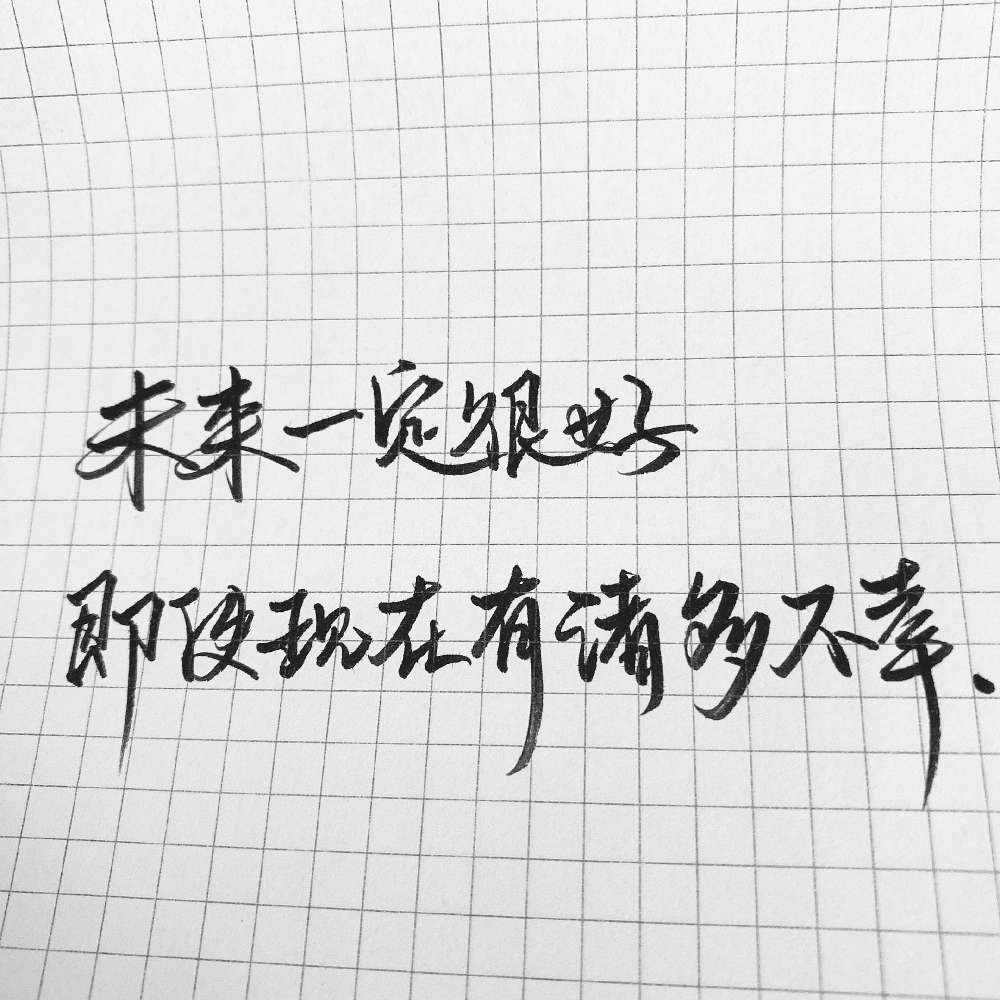 未来一定很好
即使现在有诸多不幸.